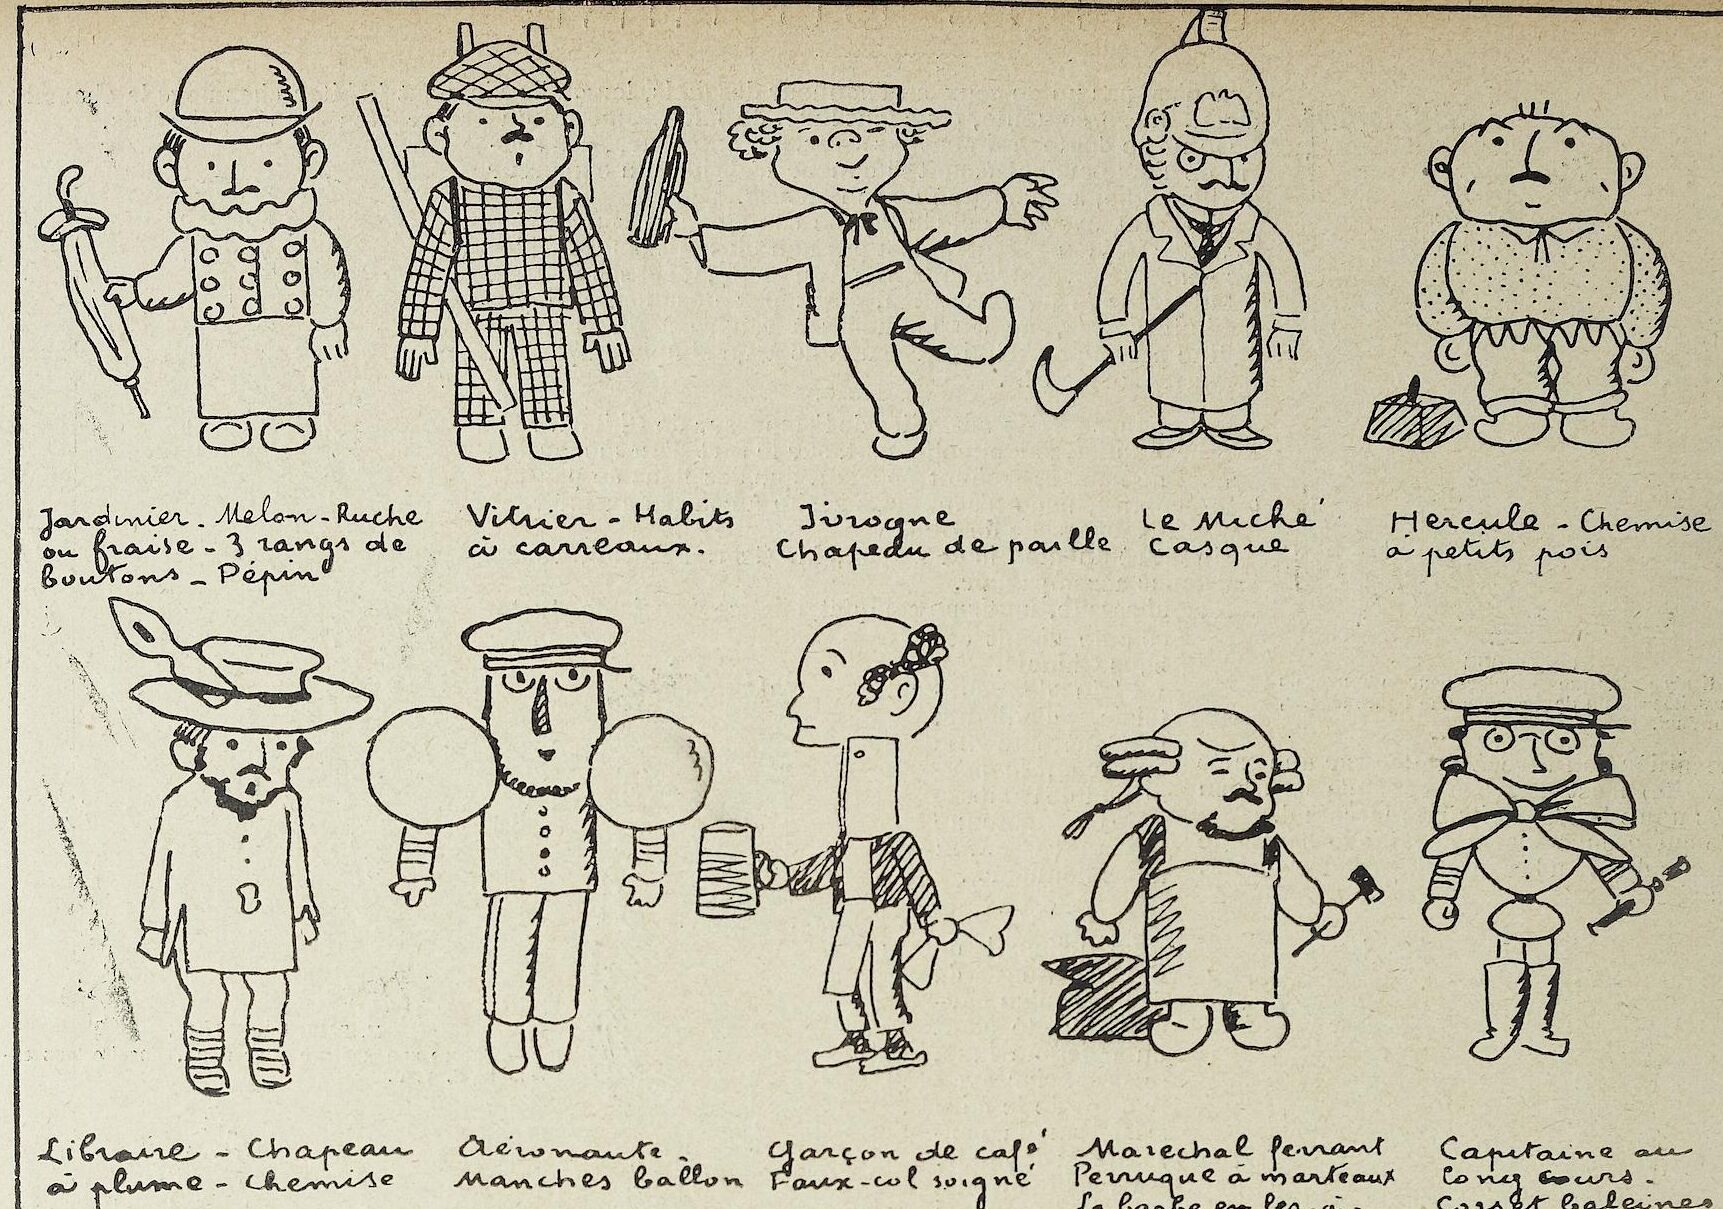 Jardinier. Melon-Ruche
ou fraise - 3 rangs de
boutons - Pépin
Vitrier - Habits
à carreaux.
Ivrogne
Chapeau de paille
Le Miché
Casque
Hercule - Chemise
à petits pois
Libraire - Chapeau
à plume - chemise
Aéronaute.
Manches ballon
Garçon de café
Faux-col soigné
Marechal ferrant
Perruque à marteaux
Capitaine au
long cours.
Corset baleines